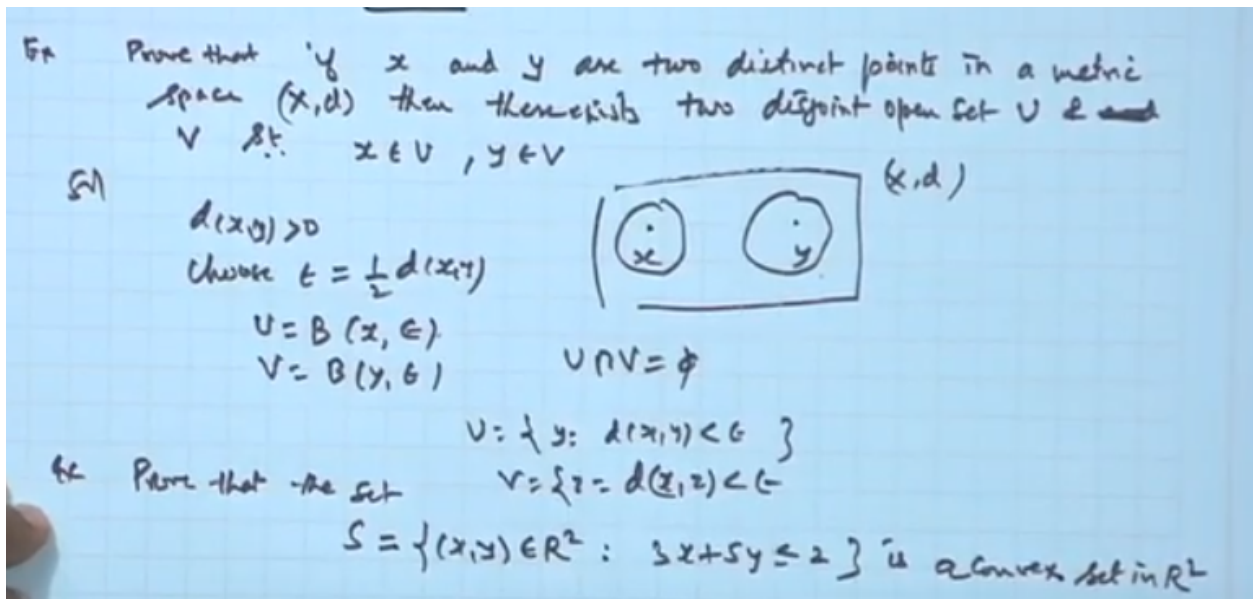 Ex Prove that if x and y are two distinct points in a metric
space (X,d) then there exists two disjoint open set U &
V st. x ∈ U , y ∈ V
Sol
(X,d)
d(x,y) >0
x y
Choose ε = 1/2 d(x,y)
U = B (x, ∈)
V = B (y, ∈) U ∩ V = ϕ
U = { y: d(x,y) < ∈ }
Ex Prove that the set V = {z = d(x,z) < ∈
S = {(x,y) ∈ R² : 3x+5y ≤ 2 } is a convex set in R²